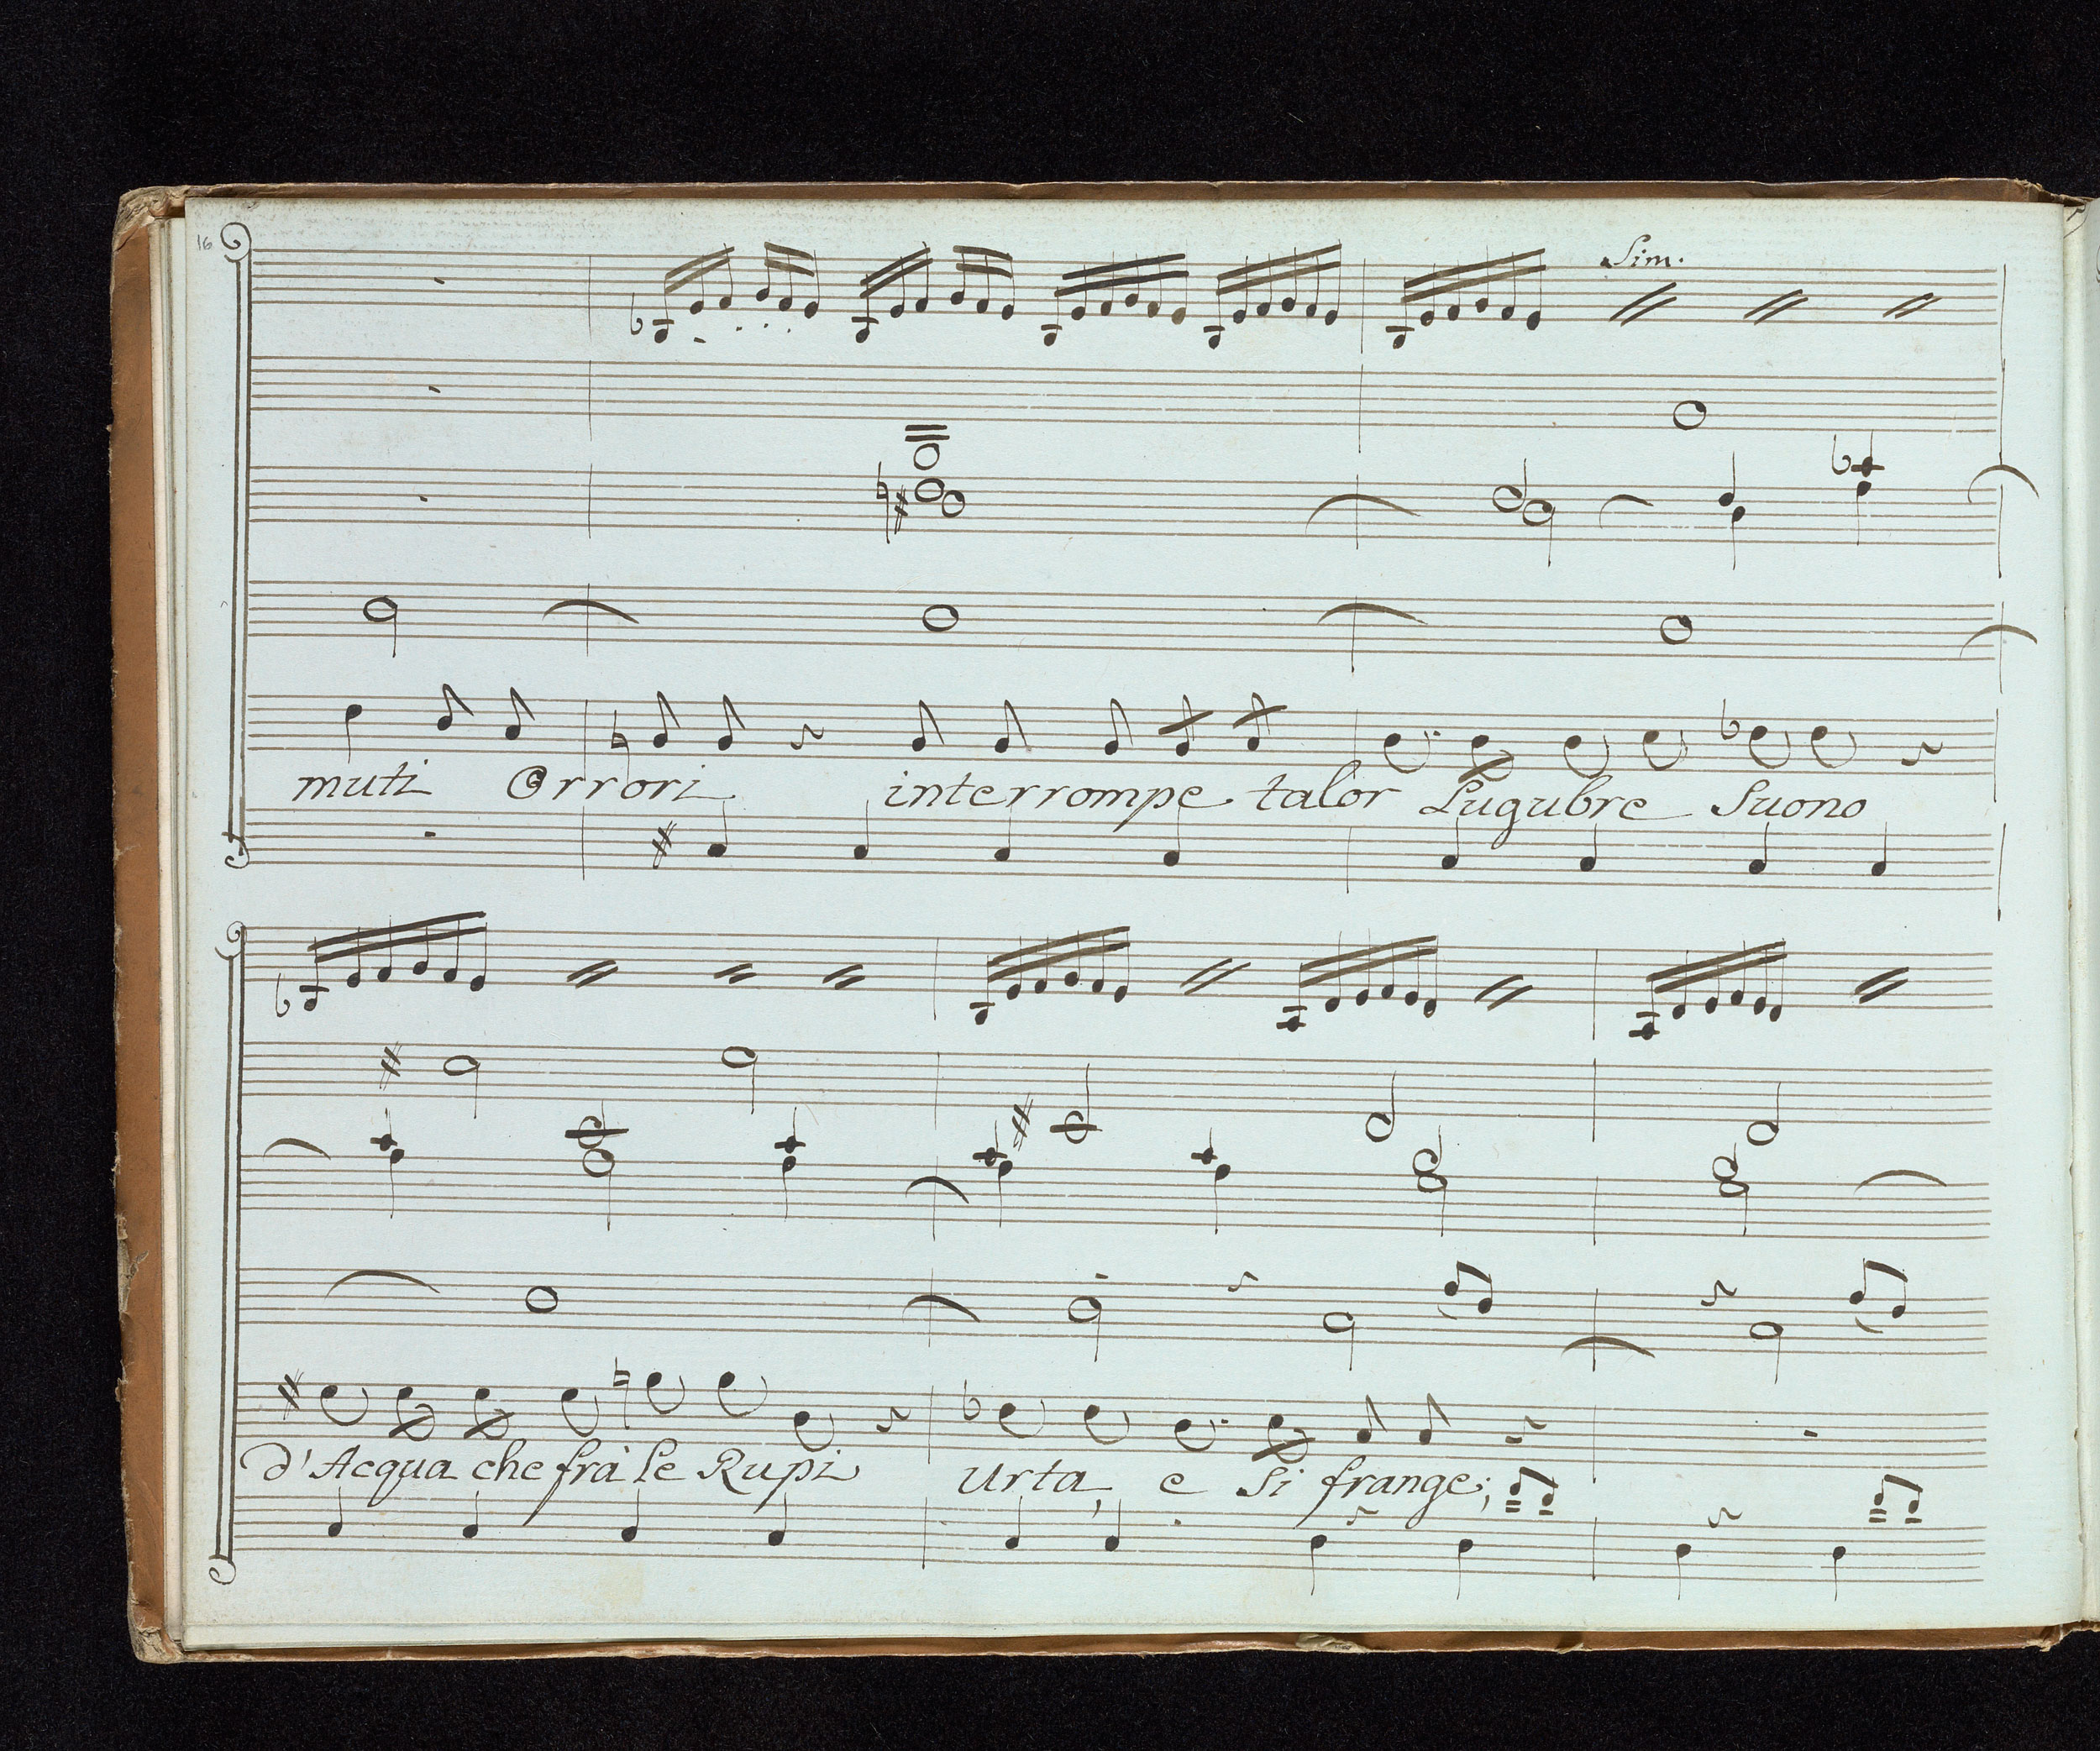 16
Sim.
muti Orrori interrompe talor Lugubre Suono
d'Acqua che frà le Rupi Urta, e Si frange;